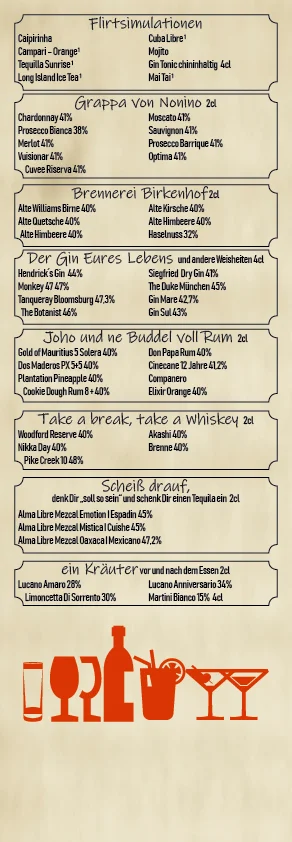 Flirtsimulationen
Caipirinha Cuba Libre¹
Campari - Orange¹ Mojito
Tequilla Sunrise¹ Gin Tonic chininhaltig 4cl
Long Island Ice Tea¹ Mai Tai¹
Grappa von Nonino 2cl
Chardonnay 41% Moscato 41%
Prosecco Bianca 38% Sauvignon 41%
Merlot 41% Prosecco Barrique 41%
Vuisionar 41% Optima 41%
Cuvee Riserva 41%
Brennerei Birkenhof 2cl
Alte Williams Birne 40% Alte Kirsche 40%
Alte Quetsche 40% Alte Himbeere 40%
Alte Himbeere 40% Haselnuss 32%
Der Gin Eures Lebens und andere Weisheiten 4cl
Hendrick's Gin 44% Siegfried Dry Gin 41%
Monkey 47 47% The Duke München 45%
Tanqueray Bloomsburg 47,3% Gin Mare 42,7%
The Botanist 46% Gin Sul 43%
Joho und ne Buddel voll Rum 2cl
Gold of Mauritius 5 Solera 40% Don Papa Rum 40%
Dos Maderos PX 5+5 40% Cinecane 12 Jahre 41,2%
Plantation Pineapple 40% Companero
Cookie Dough Rum 8 + 40% Elixir Orange 40%
Take a break, take a Whiskey 2cl
Woodford Reserve 40% Akashi 40%
Nikka Day 40% Brenne 40%
Pike Creek 10 48%
Scheiß drauf,
denk Dir „soll so sein" und schenk Dir einen Tequila ein 2cl
Alma Libre Mezcal Emotion I Espadin 45%
Alma Libre Mezcal Mistica I Cuishe 45%
Alma Libre Mezcal Oaxaca I Mexicano 47,2%
ein Kräuter vor und nach dem Essen 2cl
Lucano Amaro 28% Lucano Anniversario 34%
Limoncetta Di Sorrento 30% Martini Bianco 15% 4cl